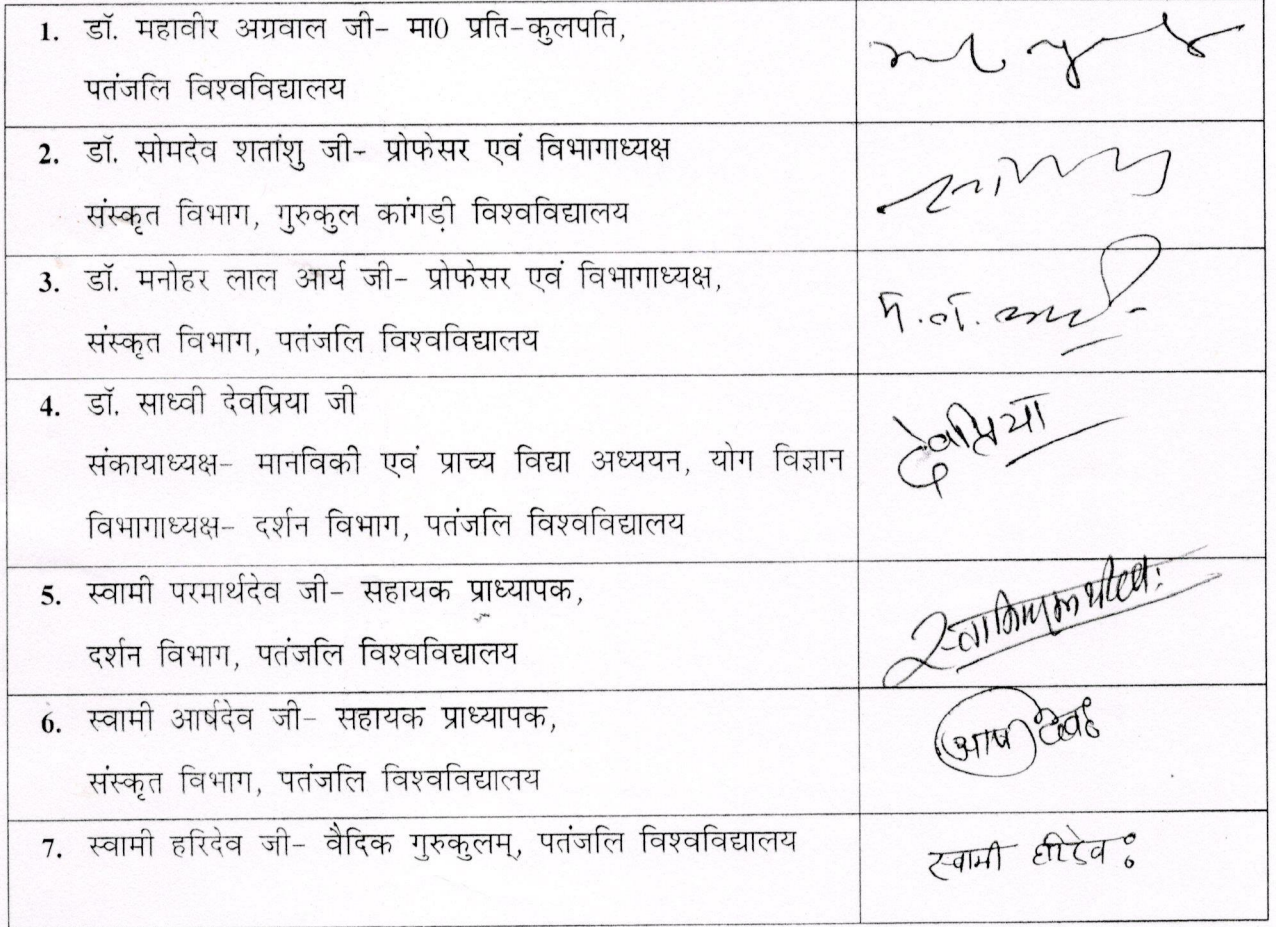 1. डॉ. महावीर अग्रवाल जी- मा0 प्रति-कुलपति,
पतंजलि विश्वविद्यालय
2. डॉ. सोमदेव शतांशु जी- प्रोफेसर एवं विभागाध्यक्ष
संस्कृत विभाग, गुरुकुल कांगड़ी विश्वविद्यालय
3. डॉ. मनोहर लाल आर्य जी- प्रोफेसर एवं विभागाध्यक्ष,
म. ल. आर्य
संस्कृत विभाग, पतंजलि विश्वविद्यालय
4. डॉ. साध्वी देवप्रिया जी
देवप्रिया
संकायाध्यक्ष- मानविकी एवं प्राच्य विद्या अध्ययन, योग विज्ञान
विभागाध्यक्ष- दर्शन विभाग, पतंजलि विश्वविद्यालय
5. स्वामी परमार्थदेव जी- सहायक प्राध्यापक,
दर्शन विभाग, पतंजलि विश्वविद्यालय
6. स्वामी आर्षदेव जी- सहायक प्राध्यापक,
आर्षदेवः
संस्कृत विभाग, पतंजलि विश्वविद्यालय
7. स्वामी हरिदेव जी- वैदिक गुरुकुलम्, पतंजलि विश्वविद्यालय
स्वामी हरिदेवः